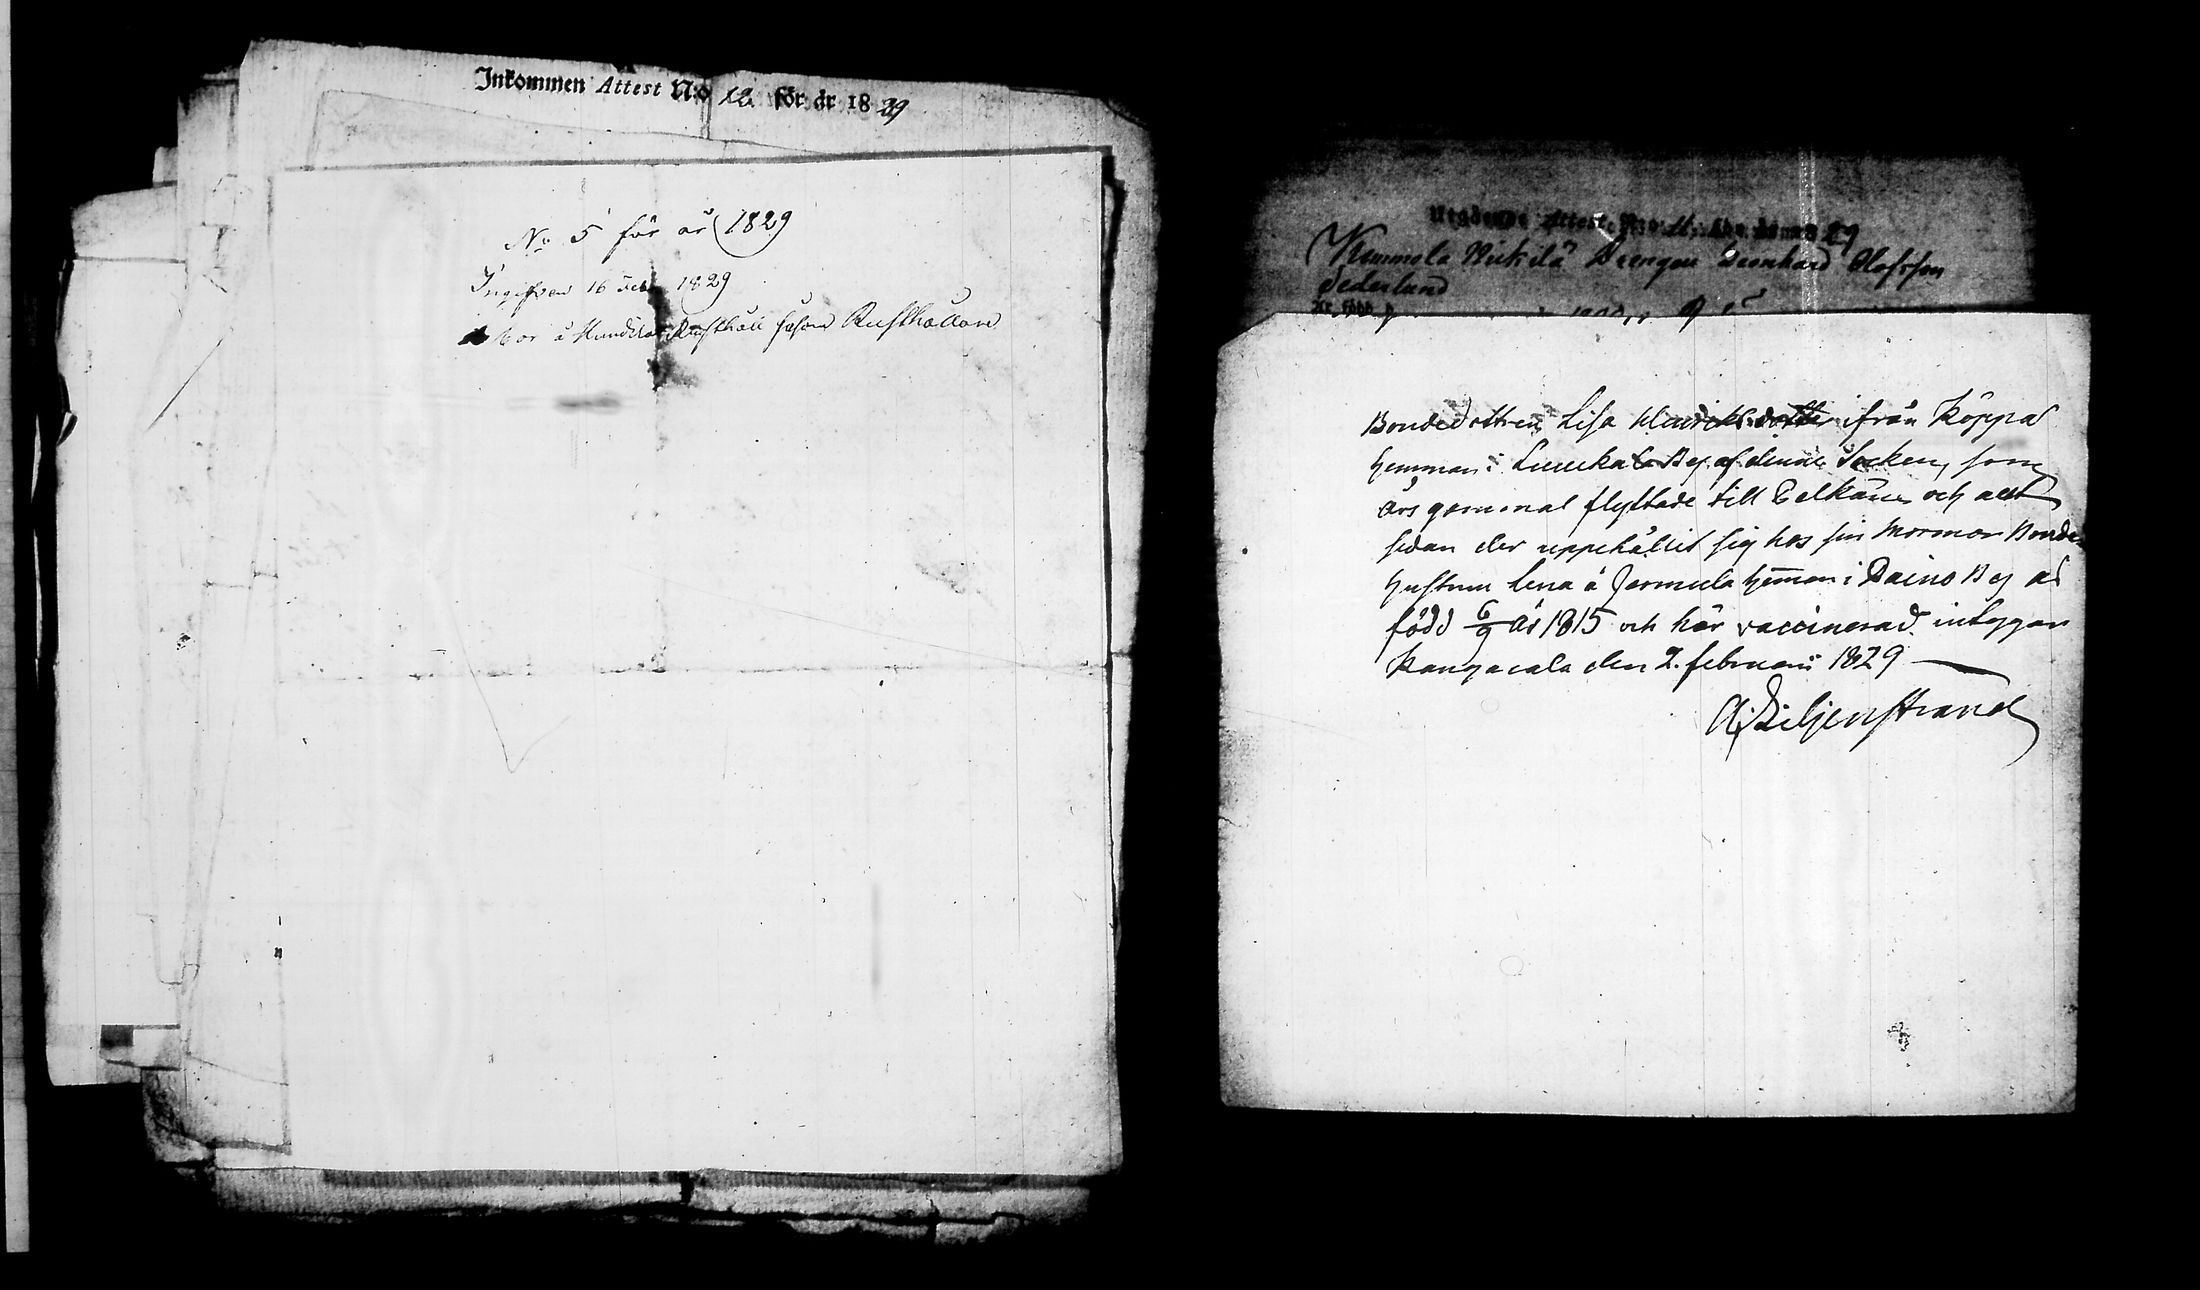 Inkommen Attest N:o 12. för år 1829
No 5 för år 1829
Ingifven 16 Feb 1829
Bor å Rusthåll såsom Rusthållare
Utgående Attest N:o 29
Kummola Drengen Leonhard Olofsson
Sederlund
Bondedottren Lisa Henricksdotter ifrån Köppa
hemman i Liuckala By af denna Socken, som
års gammal flyttade till Pelkäne och allt
sedan der uppehållit sig hos sin Mormor Bonde
hustrun Lena å Jermula heman i Raino By är
född 6/9 år 1815 och här vaccinerad. intygar
Kangasala den 2. februari 1829
A: Liljenstrand